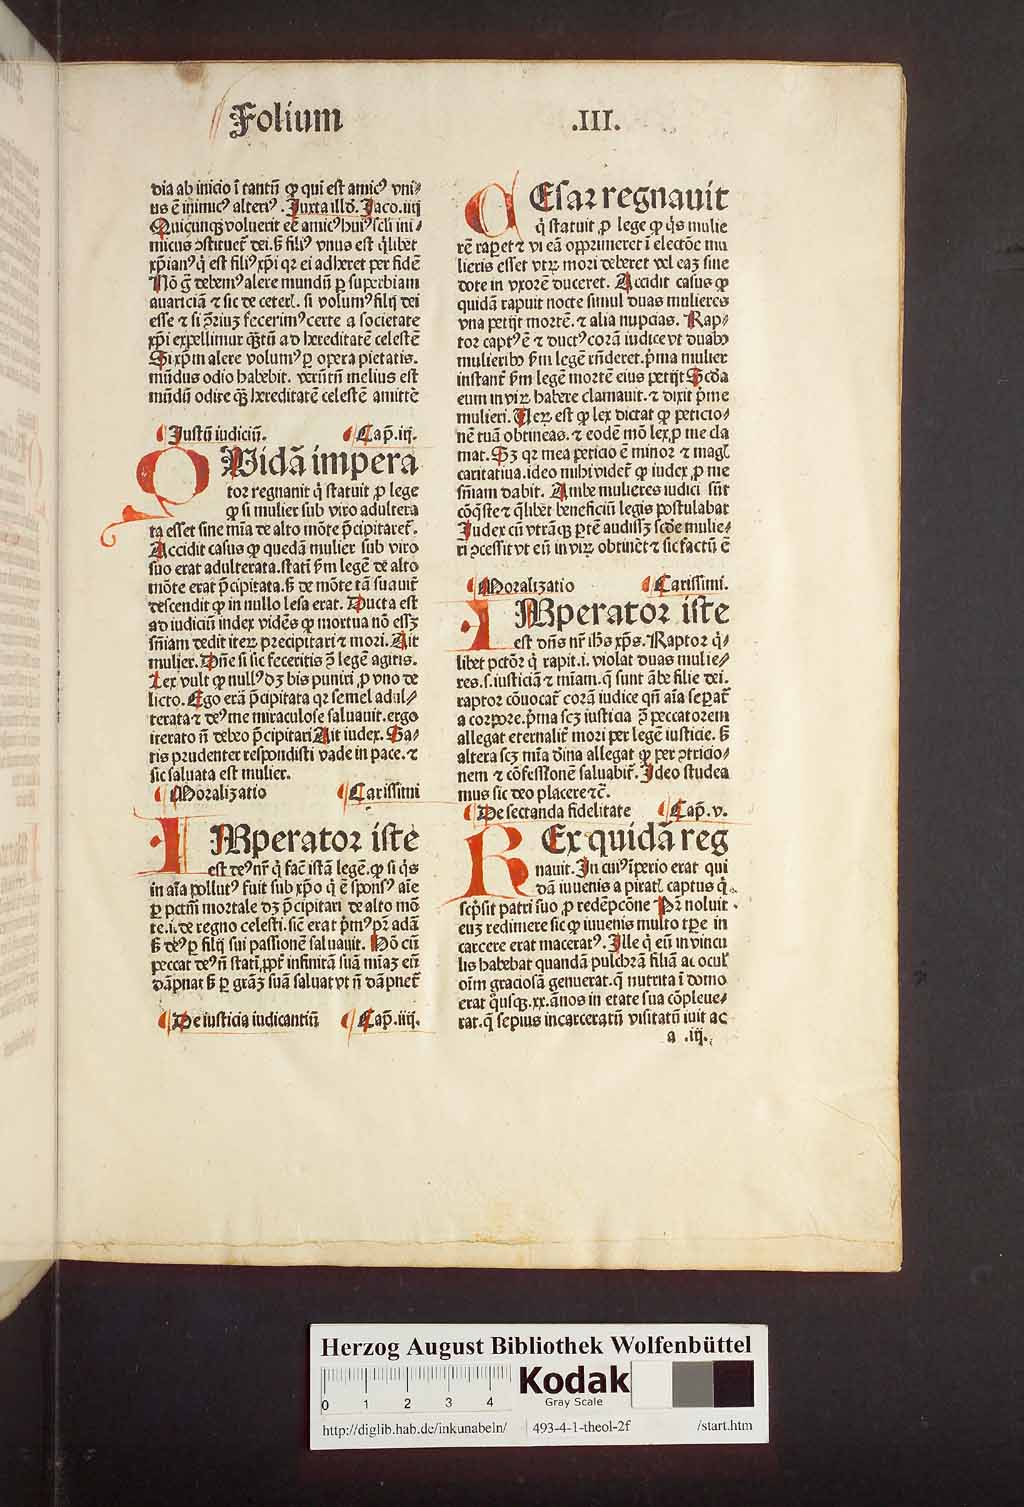 Folium .III.
dia ab inicio ī tantū ꝙ qui est amicꝰ vni⸗
us ē inimicꝰ alteriꝰ. Juxta illd̄. Jaco. iiij
Quicunqꝫ voluerit eē amicꝰ huiꝰ scl̄i ini⸗
micus ↄstituet᷑ dei. s̄ filiꝰ vnus est q̄libet
xp̄ianꝰ q̄ est filiꝰ xp̄i qꝛ ei adheret per fidē
Nō g̅ debemꝰ alere mundū ꝑ superbiam
auariciā ⁊ sic de ceteꝭ. si volumꝰ filij dei
esse ⁊ si ↄ̄riuꝫ fecerimꝰ certe a societate
xp̄i expellimur qꝫtū ad hereditatē celestē
Si xp̄m alere volumꝰ ꝑ opera pietatis.
mūdus odio habebit. verūtn̄ melius est
mūdū odire qꝫ hereditatē celestē amittē
Justū iudiciū. Cap̄. iij.
QUidā impera
tor regnauit q̄ statuit ꝓ lege
ꝙ si mulier sub viro adultera
ta esset sine mīa de alto mōte p̄cipitaret᷑.
Accidit casus ꝙ quedā mulier sub viro
suo erat adulterata. statī ẜm legē de alto
mōte erat p̄cipitata. s̄ de mōte tā suauit᷑
descendit ꝙ in nullo lesa erat. Ducta est
ad iudiciū iudex vidēs ꝙ mortua nō essꝫ
sn̄iam dedit iteꝝ precipitari ⁊ mori. Ait
mulier. Dn̄e si sic feceritis ↄ̄ legē agitis.
Lex vult ꝙ nullꝰ dꝫ bis puniri ꝓ vno de
licto. Ego erā p̄cipitata qꝛ semel adul⸗
terata ⁊ deꝰ me miraculose saluauit. ergo
iterato n̄ debeo p̄cipitari Ait iudex. Sa⸗
tis prudenter respondisti vade in pace. ⁊
sic saluata est mulier.
Moralizatio Carissimi
IMperator iste
est deꝰ nr̄ q̄ fac̄ istā legē. ꝙ si q̄s
in aīa pollutꝰ fuit sub xp̄o q̄ ē sponsꝰ aīe
ꝑ pctm̄ mortale dꝫ p̄cipitari de alto mō
te. i. de regno celesti. sic̄ erat p̄mꝰ pr̄ adā
s̄ deꝰ ꝑ filij sui passionē saluauit. Hō cū
peccat deꝰ n̄ statī, ꝓpt᷑ infinitā suā mīaꝫ eū
dāpnat s̄ ꝑ grāꝫ suā saluat vt n̄ dāpnet᷑
De iusticia iudicantiū Cap̄. iiij.
CEsar regnauit
q̄ statuit ꝓ lege ꝙ q̄s mulie
rē raꝑet ⁊ vi eā opprimeret ī electōe mu
lieris esset vtꝝ mori deberet vel eaꝫ sine
dote in vxorē duceret. Accidit casus ꝙ
quidā rapuit nocte simul duas mulieres
vna petijt mortē. ⁊ alia nupcias. Rap⸗
tor captꝰ ē ⁊ ductꝰ corā iudice vt duabꝰ
mulieribꝰ ẜm legē rn̄deret. p̄ma mulier
instant᷑ ẜm legē mortē eius petijt Scd̄a
eum in viꝝ habere clamauit. ⁊ dixit p̄me
mulieri. Veꝝ est ꝙ lex dictat ꝙ peticio⸗
nē tuā obtineas. ⁊ eodē mō lex ꝓ me cla
mat. Sꝫ qꝛ mea peticio ē minor ⁊ magꝭ
caritatiua. ideo mihi videt᷑ ꝙ iudex ꝓ me
sn̄iam dabit. Ambe mulieres iudici sūt
cōq̄ste ⁊ q̄libet beneficiū legis postulabat
Judex cū vtrāqꝫ ꝑtē audissꝫ scd̄e mulie⸗
ri ↄcessit vt eū in viꝝ obtinēt ⁊ sic factū ē
Moralizatio Carissimi.
IMperator iste
est dn̄s nr̄ ih̄s xp̄s. Raptor q̄⸗
libet pctōr q̄ rapit. i. violat duas mulie⸗
res. s. iusticiā ⁊ mīam. q̄ sunt ābe filie dei.
raptor cōuocat᷑ corā iudice qn̄ aīa seꝑat᷑
a corpore. p̄ma scꝫ iusticia ↄ̄ peccatorem
allegat eternalit᷑ mori per legē iusticie. s̄
altera scꝫ mīa dīna allegat ꝙ per ↄtricio⸗
nem ⁊ cōfessionē saluabit᷑. Ideo studea
mus sic deo placere ⁊c̄.
De sectanda fidelitate Cap̄. v.
REx quidā reg
nauit. In cuiꝰ īperio erat qui
dā iuuenis a piratꝭ captus q̄
scp̄sit patri suo ꝓ redēpcōne Pr̄ noluit
euꝫ redimere sic ꝙ iuuenis multo tꝑe in
carcere erat maceratꝰ. Ille q̄ eū in vincu
lis habebat quandā pulchrā filiā ac oculꝭ
oīm graciosā genuerat. q̄ nutrita ī domo
erat q̄usqꝫ. xx. ānos in etate sua cōpleue⸗
rat. q̄ sepius incarceratū visitatū iuit ac
a .iij.
Herzog August Bibliothek Wolfenbüttel
0 1 2 3 4
Kodak
Gray Scale
http://diglib.hab.de/inkunabeln/ 493-4-1-theol-2f /start.htm